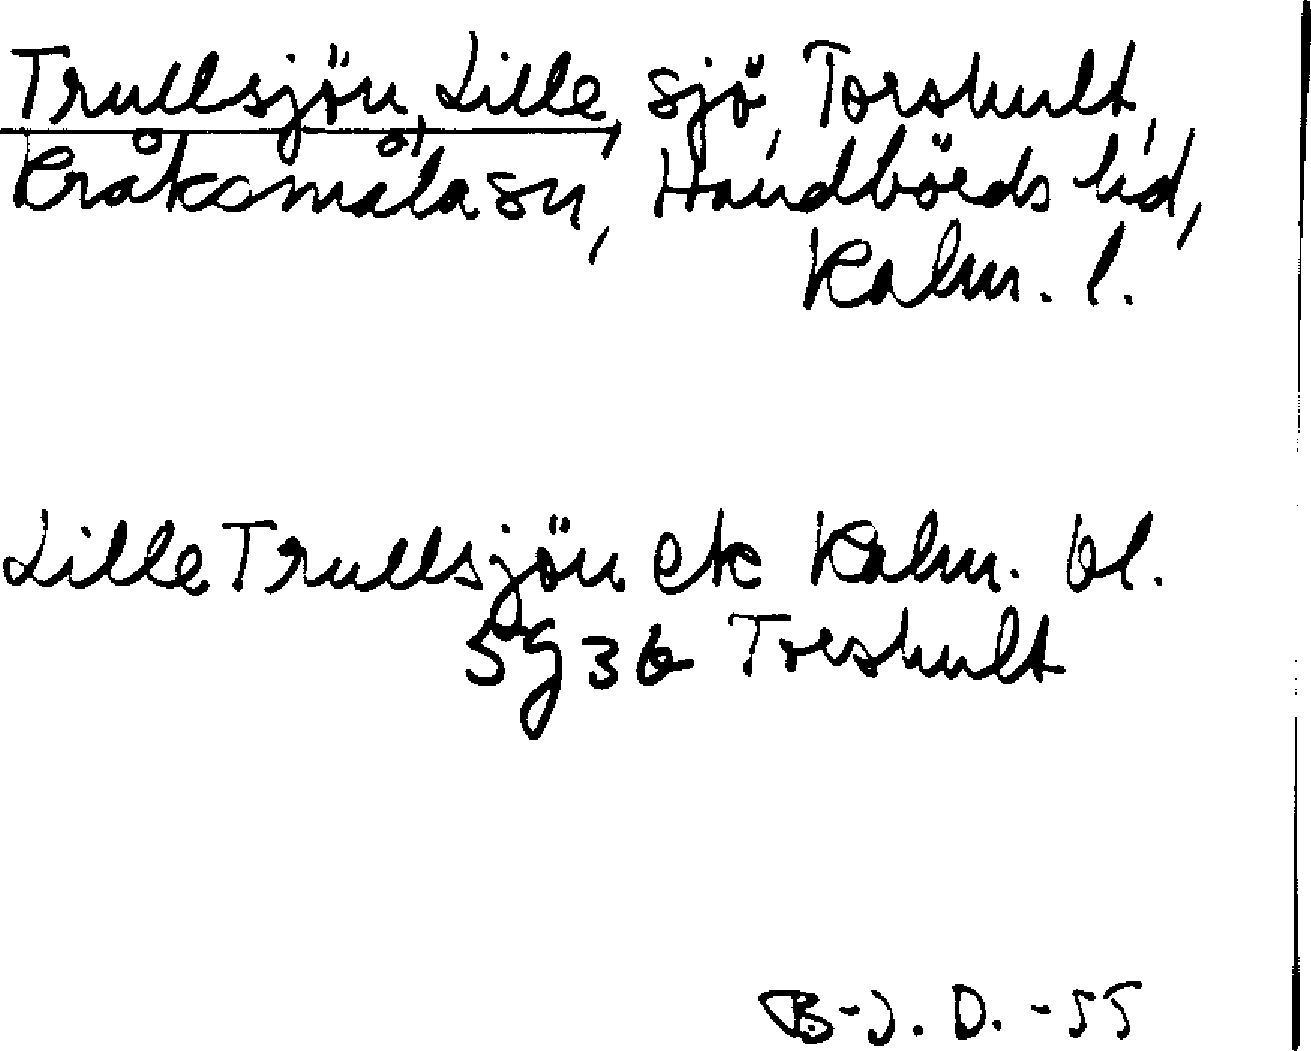 Trullsjön, Lille, sjö, Torshult,
Kråksmåla sn, Handbörds hd,
Kalm. l.
Lille Trullsjön ek Kalm. bl.
5g36 Torshult
B-J. D. -55